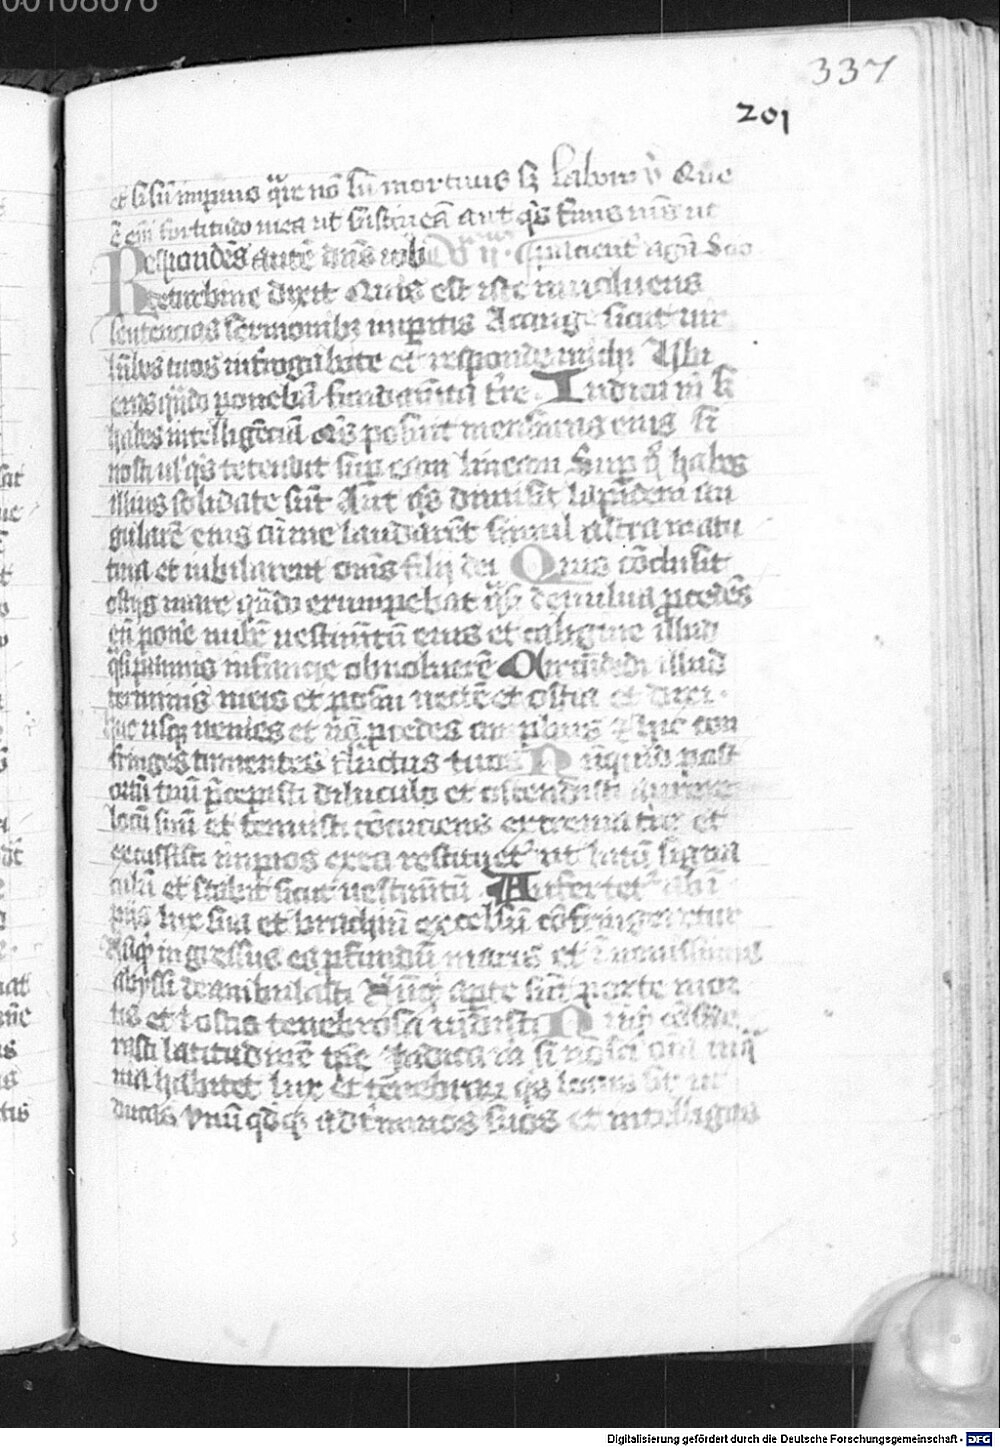 00108676
337
201
et si sū impius qͣre nō sū mortuus Labor Que
ē em̄ fortitudo mea ut sustineā aut qͥs finis meus ut
pacient agā Seo
Respondēs autē dn̄s iob
de turbine dixit Quis est iste inuoluens
sentencias sermonibꝫ inperitis Accinge sicut uir
lūbos tuos interrogabo te et responde michi Ubi
eras qn̄do ponebā fundamēta terre Indica m̄ si
habes intelligēciā Qͥs posuit mensuras eius si
nosti uł qͥs tetendit sup eam lineam Sup
illius solidate sūt Aut qͥs dimisit lapidem an
gularē eius cū me laudarēt simul astra matu
tina et iubilarent om̄s filij dei Quis cōclusit
ostijs mare qn̄do erumpebat qͣsi de uulua ꝓcedēs
cū ponē nubē uestimētū eius et caligine illud
qͣsi pannis infancie obuoluerē Circūdedi illud
terminis meis et posui uectē et ostia et dixi
huc usqꝫ uenies et nō ꝓcedes amplius et hic con
fringes tumentes fluctus tuos Nūquid post
ortū tuū p̄cepisti diluculo et ostendisti aurore
locū suū et tenuisti cōcuciens extrema tre et
excussisti impios ex ea restituet ut lutū signa
culū et stabit sicut uestimētū Aufertet ab ī
pijs lux sua et brachiū excelsū cōfringeretur
ingressus es ꝓfundū maris et ī nouissimis
abyssi deambulasti Nūqͥd apte sūt porte mor
tis et hostia tenebrosa uidisti Nūqͥd cōside
rasti latitudinē tre Indica m̄ si nosti oīa in q̄
uia habitet lux et tenebraꝝ qͥs locus sit ut
ducas vnū qͦdqꝫ ad tminos suos et intelligas
Digitalisierung gefördert durch die Deutsche Forschungsgemeinschaft - DFG